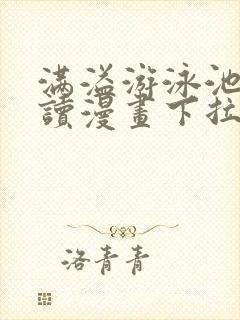 滿溢游泳池
讀漫畫下拉
洛青青